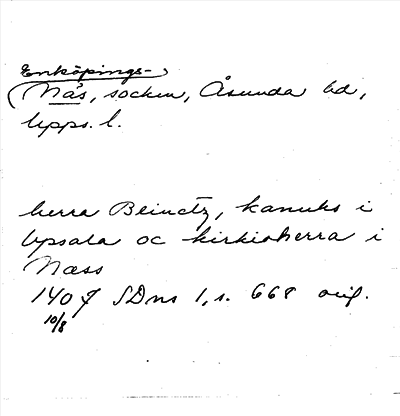 Enköpings-
(Näs, socken, Åsunda hd,
Upps. l.
herra Beinctz, kanuks i
Upsala oc kirkioherra i
Næss
1407 SDns 1, s. 668 orig.
10/8